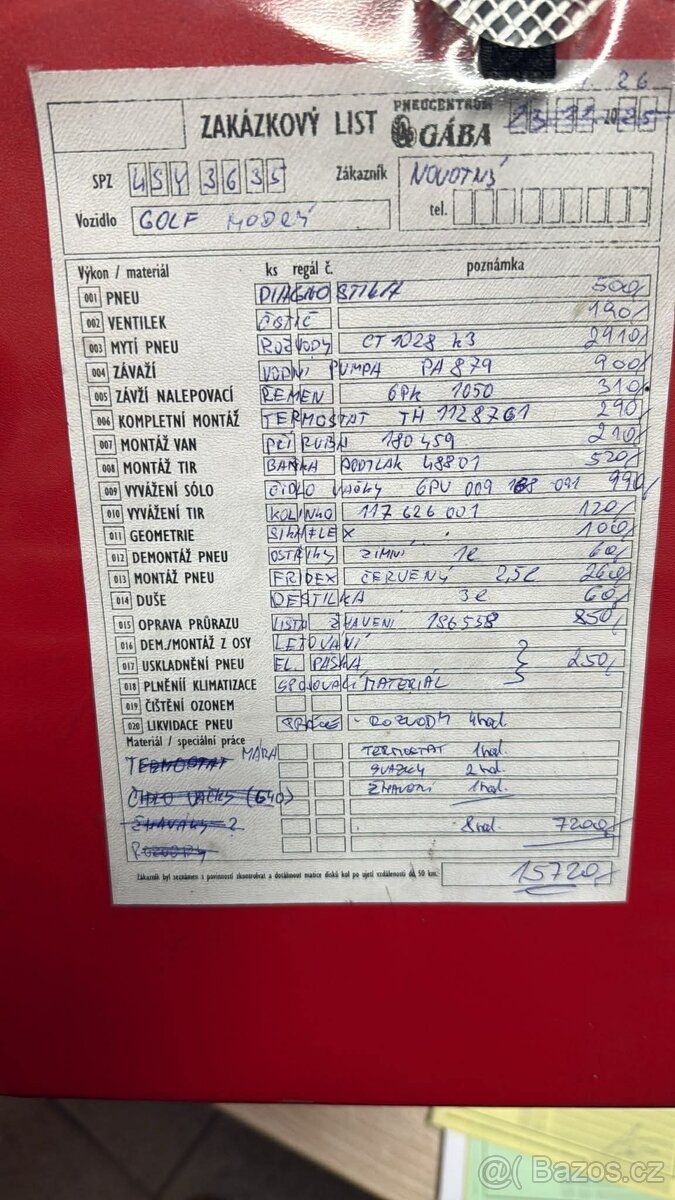 26
ZAKÁZKOVÝ LIST PNEUCENTRUM GÁBA 2025
SPZ 4SY 3635 Zákazník NOVOTNÝ
Vozidlo GOLF MODRÝ tel.
Výkon / materiál ks regál č. poznámka
001 PNEU DIAGNOSTIKA 500/
002 VENTILEK ČISTIČ 190/
003 MYTÍ PNEU ROZVODY CT 1028 K3 2910/
004 ZÁVAŽÍ VODNÍ PUMPA PA 879 900/
005 ZÁVŽÍ NALEPOVACÍ ŘEMEN 6PK 1050 310
006 KOMPLETNÍ MONTÁŽ TERMOSTAT TH 1128761 290/
007 MONTÁŽ VAN PŘÍRUBA 180459 210/
008 MONTÁŽ TIR BAŇKA PODTLAK 48801 520/
009 VYVÁŽENÍ SÓLO ČIDLO VAČKY 6PU 009 168 091 990/
010 VYVÁŽENÍ TIR KOLINKO 117 626 001 120/
011 GEOMETRIE SIKAFLEX 100/
012 DEMONTÁŽ PNEU OSTŘIKY ZIMNÍ 1l 60/
013 MONTÁŽ PNEU FRIDEX ČERVENÝ 2,5l 260/
014 DUŠE DESTILKA 3l 60/
015 OPRAVA PRŮRAZU LIŠTA ŽHAVENÍ 186538 850/
016 DEM./MONTÁŽ Z OSY LETOVÁNÍ
017 USKLADNĚNÍ PNEU EL. PÁSKA 250/
018 PLNĚNÍÍ KLIMATIZACE SPOJOVACÍ MATERIÁL
019 ČIŠTĚNÍ OZONEM
020 LIKVIDACE PNEU PRÁCE - ROZVODY 4hod.
Materiál / speciální práce
TERMOSTAT MÁRA TERMOSTAT 1hod.
ČIDLO VAČKY (G40) SVAZKY 2hod.
ŽHAVENÍ 1hod.
ŽHAVÁKY 2 8hod. 7200/
ROZVODY
Zákazník byl seznámen s povinností zkontrolovat a dotáhnout matice disků kol po ujetí vzdálenosti do 50 km. 15720/
@ Bazos.cz